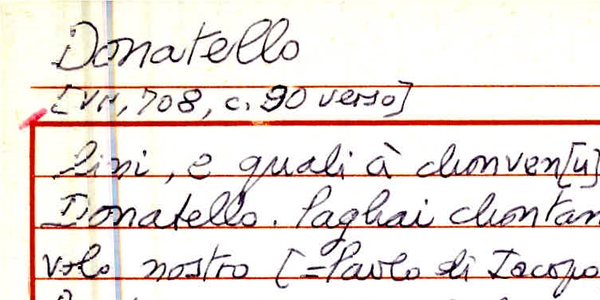 Donatello
[VII, 708, c. 90 verso]
lini, e quali à chonven[u]
Donatello. Paghai chontan
volo nostro [=Paolo di Iacopo